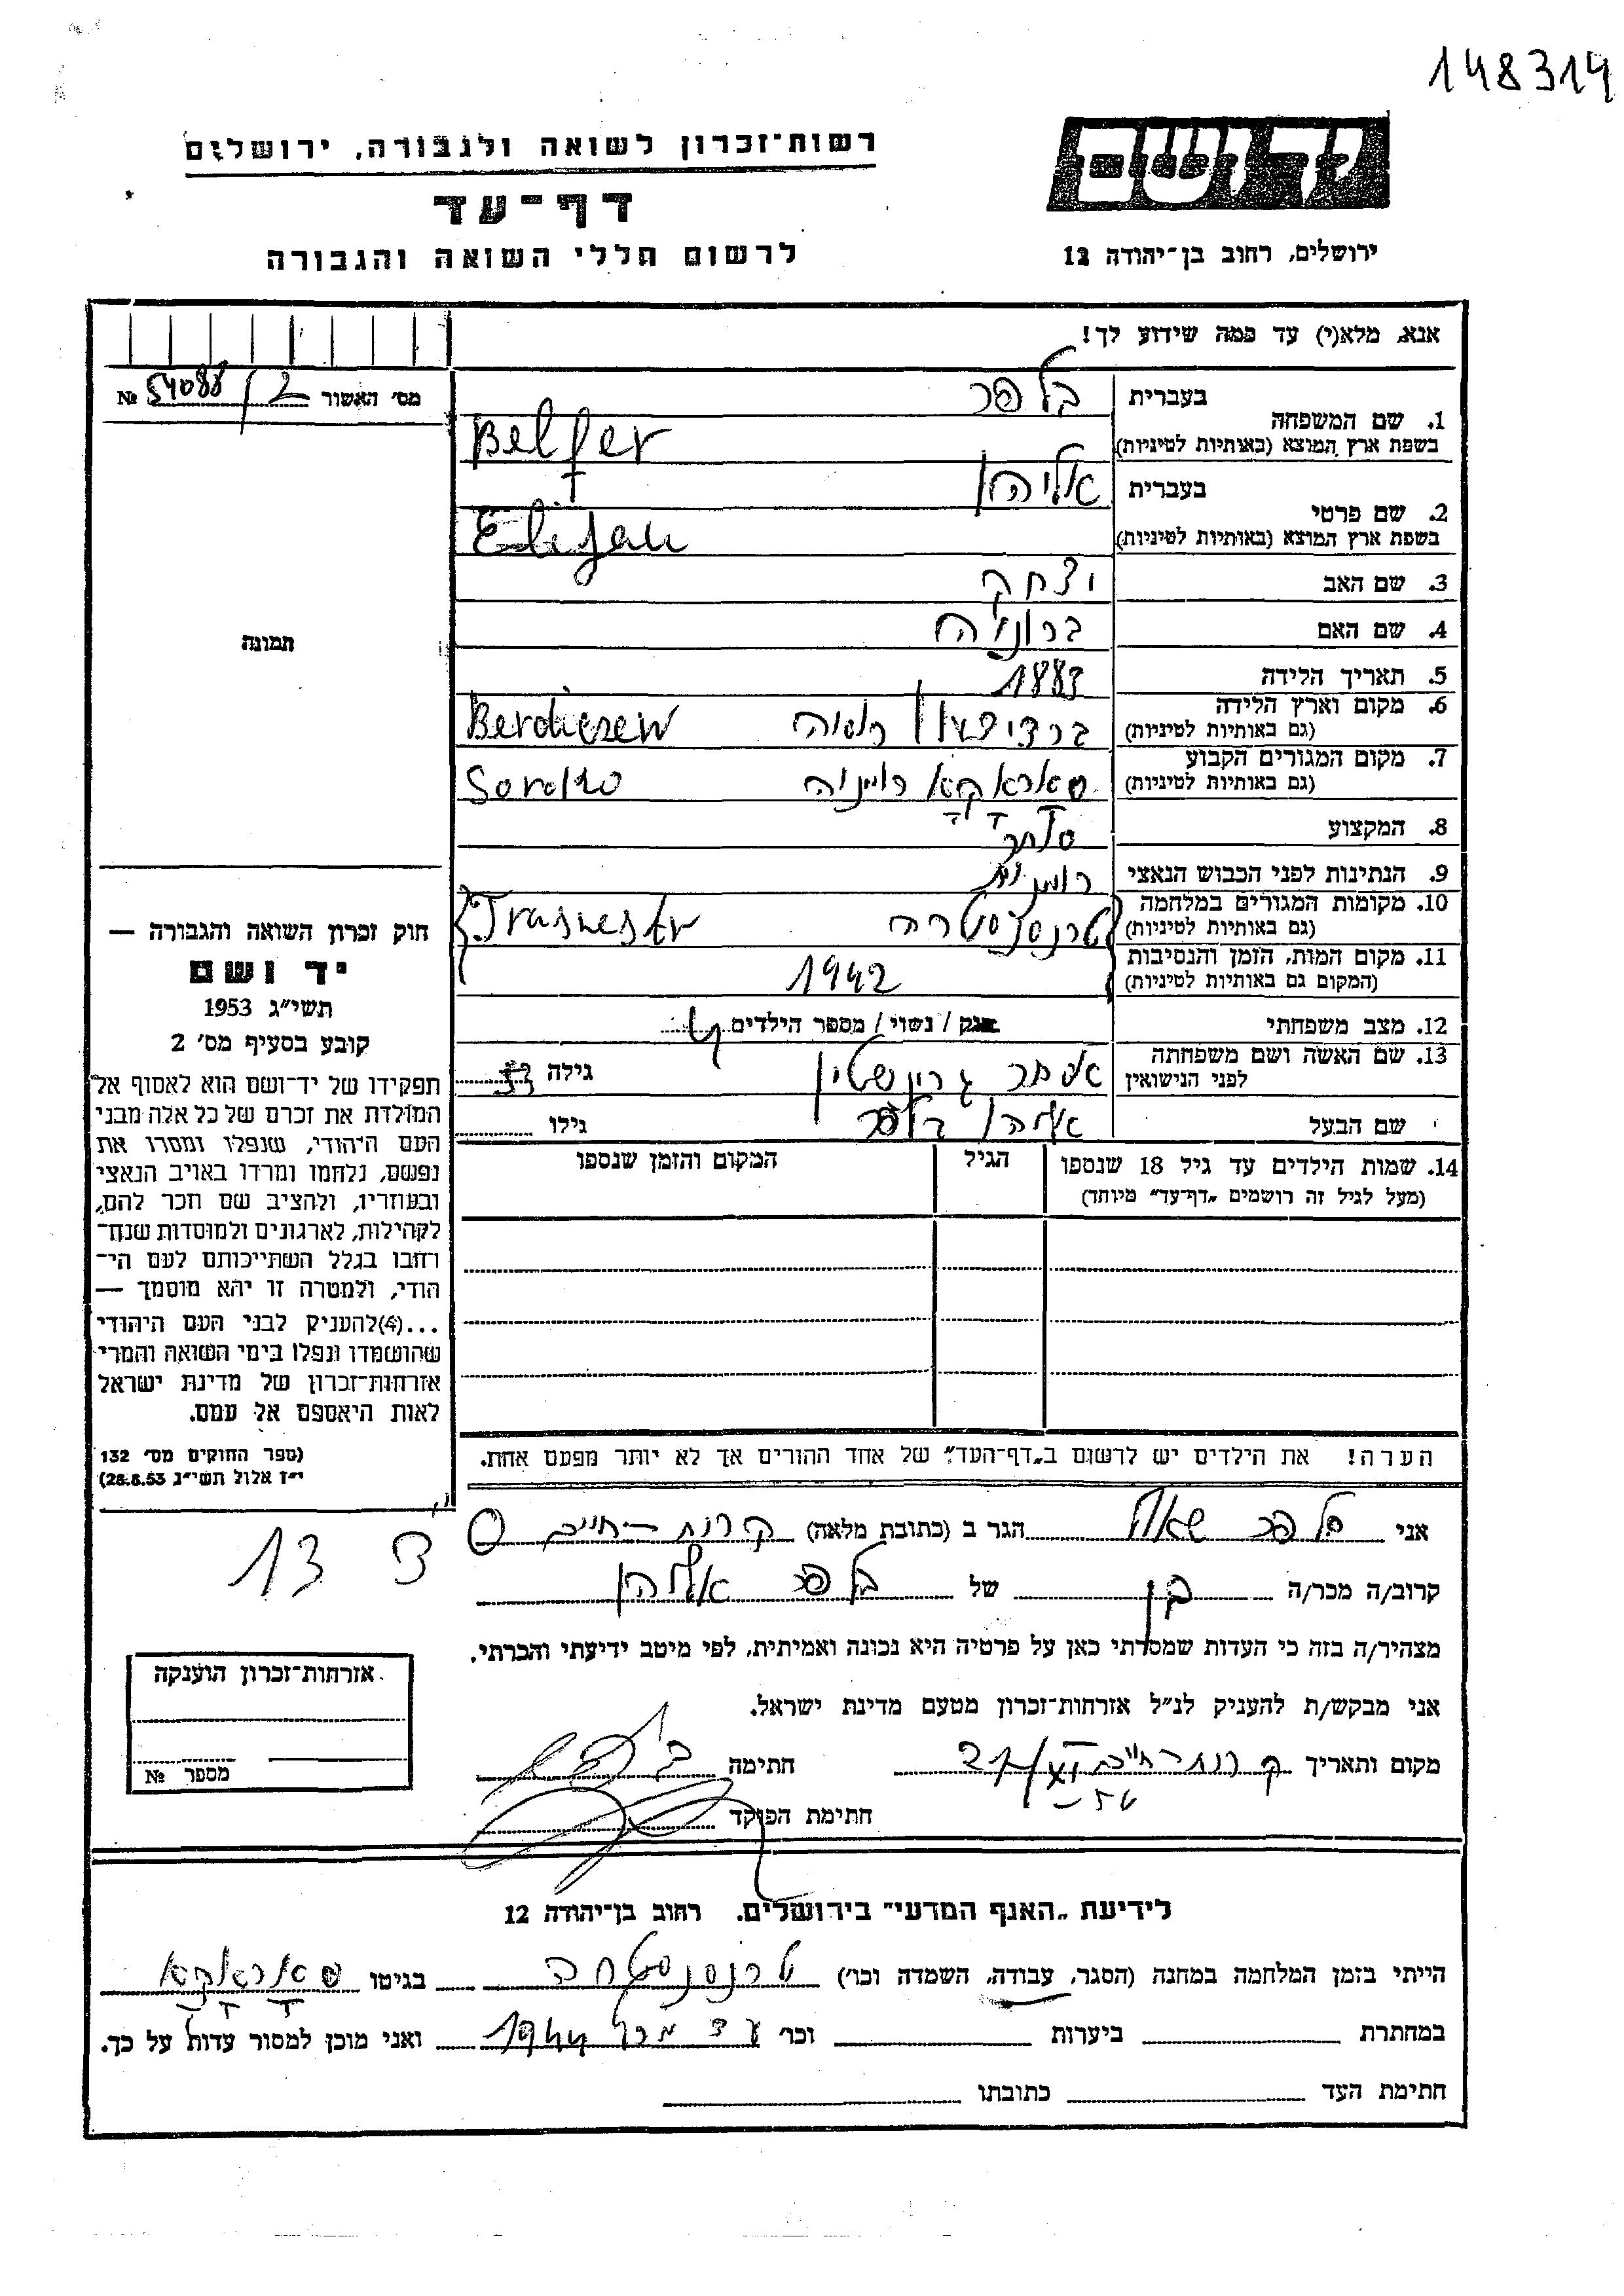 148314
יד ושם
רשות-זכרון לשואה ולגבורה, ירושלים
דף-עד
לרשום חללי השואה והגבורה
ירושלים, רחוב בן-יהודה 12
אנא, מלא(י) עד כמה שידוע לך!
מס' האשור 54088/2 №
בעברית בלפר
1. שם המשפחה
בשפת ארץ המוצא (באותיות לטיניות) Belfer
בעברית אליהו
2. שם פרטי
בשפת ארץ המוצא (באותיות לטיניות) Elijau
3. שם האב יצחק
4. שם האם ברוניה
תמונה
5. תאריך הלידה 1883
6. מקום וארץ הלידה
(גם באותיות לטיניות) רוסיה Berdiczew
7. מקום המגורים הקבוע
(גם באותיות לטיניות) סאראקא
8. המקצוע סוחר
9. הנתינות לפני הכבוש הנאצי רומנית
10. מקומות המגורים במלחמה
(גם באותיות לטיניות) Trasnestr
11. מקום המות, הזמן והנסיבות
(המקום גם באותיות לטיניות) 1942
12. מצב משפחתי רווק / נשוי / מספר הילדים 4
13. שם האשה ושם משפחתה
לפני הנישואין אסתר גרינשטין גילה 53
שם הבעל אליהו בלפר גילו
14. שמות הילדים עד גיל 18 שנספו
(מעל לגיל זה רושמים „דף-עד" מיוחד)
הגיל
המקום והזמן שנספו
חוק זכרון השואה והגבורה —
יד ושם
תשי"ג 1953
קובע בסעיף מס' 2
תפקידו של יד-ושם הוא לאסוף אל
המולדת את זכרם של כל אלה מבני
העם היהודי, שנפלו ומסרו את
נפשם, נלחמו ומרדו באויב הנאצי
ובעוזריו, ולהציב שם וזכר להם,
לקהילות, לארגונים ולמוסדות שנח-
רבו בגלל השתייכותם לעם הי-
הודי, ולמטרה זו יהא מוסמך —
...(4)להעניק לבני העם היהודי
שהושמדו ונפלו בימי השואה והמרי
אזרחות-זכרון של מדינת ישראל
לאות היאספם אל עמם.
(ספר החוקים מס' 132
י"ז אלול תשי"ג 28.8.53)
הערה! את הילדים יש לרשום ב„דף-העד" של אחד ההורים אך לא יותר מפעם אחת.
אני בלפר שאול הגר ב (כתובת מלאה) קרית-חיים
13
קרוב/ה מכר/ה בן של בלפר אליהו
מצהיר/ה בזה כי העדות שמסרתי כאן על פרטיה היא נכונה ואמיתית, לפי מיטב ידיעתי והכרתי.
אני מבקש/ת להעניק לנ"ל אזרחות-זכרון מטעם מדינת ישראל.
מקום ותאריך קרית-חיים
חתימה
חתימת הפוקד
אזרחות-זכרון הוענקה
מספר №
לידיעת „האגף המדעי" בירושלים. רחוב בן-יהודה 12
הייתי בזמן המלחמה במחנה (הסגר, עבודה, השמדה וכו') טרנסנסטריה בגיטו סאראקא
במחתרת ביערות וכו' 1944 ואני מוכן למסור עדות על כך.
חתימת העד כתובתו